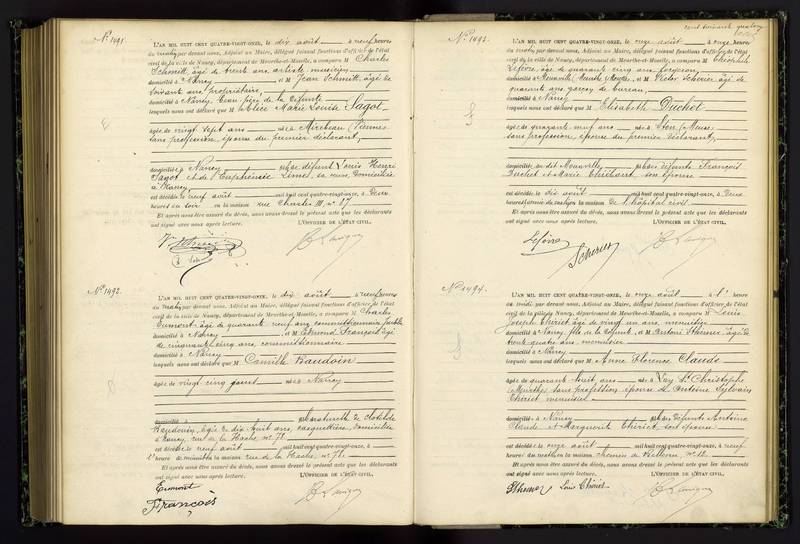 N° 1491.
L'AN MIL HUIT CENT QUATRE-VINGT-ONZE, le dix août à neuf heures
du matin par devant nous, Adjoint au Maire, délégué faisant fonctions d'officier de l'état
civil de la ville de Nancy, département de Meurthe-et-Moselle, a comparu M Charles
Schmitt âgé de trente ans, artiste musicien
domicilié à Nancy et M Jean Schmitt, âgé de
soixante ans, propriétaire,
domicilié à Nancy, beau père de la défunte
lesquels nous ont déclaré que M Marie Louise Sagot
âgée de vingt sept ans née à Mirebeau (Vienne)
sans profession, épouse du premier déclarant,
domiciliée à Nancy fille de défunt Louis Henri
Sagot et de Euphrasie sa veuve, domiciliée
à Nancy
est décédée le neuf août mil huit cent quatre-vingt-onze, à deux
heures du soir en la maison rue Charles III, n° 17
Et après nous être assuré du décès, nous avons dressé le présent acte que les déclarants
ont signé avec nous après lecture. L'OFFICIER DE L'ÉTAT CIVIL,
N° 1492.
L'AN MIL HUIT CENT QUATRE-VINGT-ONZE, le dix août à neuf heures
du matin par devant nous, Adjoint au Maire, délégué faisant fonctions d'officier de l'état
civil de la ville de Nancy, département de Meurthe-et-Moselle, a comparu M Charles
Eumont âgé de quarante neuf ans, commissionnaire
domicilié à Nancy et M Edmond François âgé
de cinquante cinq ans, commissionnaire
domicilié à Nancy
lesquels nous ont déclaré que M Camille Baudoin
âgé de vingt cinq jours né à Nancy
domicilié à fils naturel de Clotilde
Baudouin, âgée de dix huit ans, casquettière, domiciliée
à Nancy, rue de la Hache, n° 71.
est décédé le neuf août mil huit cent quatre-vingt-onze, à
heure de en la maison rue de la Hache, n° 71.
Et après nous être assuré du décès, nous avons dressé le présent acte que les déclarants
ont signé avec nous après lecture. L'OFFICIER DE L'ÉTAT CIVIL,
Eumont
François
N° 1493.
L'AN MIL HUIT CENT QUATRE-VINGT-ONZE, le onze août à onze heures
du matin par devant nous, Adjoint au Maire, délégué faisant fonctions d'officier de l'état
civil de la ville de Nancy, département de Meurthe-et-Moselle, a comparu M Théophile
Lefèvre, âgé de quarante cinq ans, forgeron,
domicilié à et M Victor Scherier, âgé de
quarante ans, garçon de bureau,
domicilié à Nancy
lesquels nous ont déclaré que M Elisabeth Duchet
âgée de quarante neuf ans née à (Meuse)
sans profession, épouse du premier déclarant,
domiciliée au dit fille de défunts François
Duchet et Marie son épouse
est décédée le dix août mil huit cent quatre-vingt-onze, à deux
heures en la maison de l'hôpital civil.
Et après nous être assuré du décès, nous avons dressé le présent acte que les déclarants
ont signé avec nous après lecture. L'OFFICIER DE L'ÉTAT CIVIL,
Lefèvre
Scherier
N° 1494.
L'AN MIL HUIT CENT QUATRE-VINGT-ONZE, le onze août à heure
du par devant nous, Adjoint au Maire, délégué faisant fonctions d'officier de l'état
civil de la ville de Nancy, département de Meurthe-et-Moselle, a comparu M Louis
Joseph Thiriet, âgé de vingt un ans, menuisier
domicilié à Nancy, fils de la défunte, et M Antoine âgé de
trente quatre ans, menuisier
domicilié à Nancy
lesquels nous ont déclaré que M Anne Florence Claude
âgée de quarante huit ans née à Vay St Christophe
(Meurthe) sans profession, épouse de Antoine Sylvain
Thiriet menuisier
domiciliée à Nancy fille de défunts Antoine
Claude et Marguerite Thiriet, son épouse
est décédée le onze août mil huit cent quatre-vingt-onze, à neuf
heures du matin en la maison chemin de n° 12.
Et après nous être assuré du décès, nous avons dressé le présent acte que les déclarants
ont signé avec nous après lecture. L'OFFICIER DE L'ÉTAT CIVIL,
Louis Thiriet